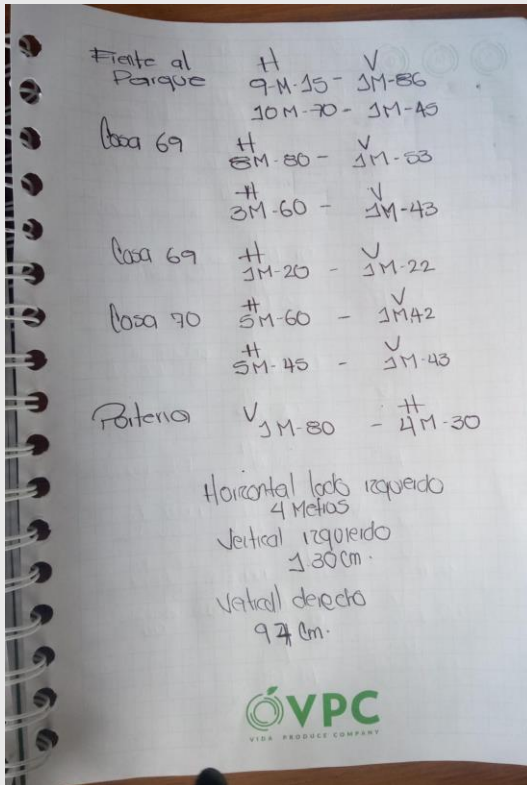 Frente al H V
Parque 9-M-15 - 1M-86
10M-70 - 1M-45
Casa 69 H V
8M-80 - 1M-53
H V
3M-60 - 1M-43
Casa 69 H V
1M-20 - 1M-22
Casa 70 H V
5M-60 - 1M42
H V
5M-45 - 1M-43
Porteria V 1M-80 - H 4M-30
Horizontal lado izquierdo
4 Metros
Vertical izquierdo
1.30 cm.
Vertical derecho
94 cm.
VPC
VIDA PRODUCE COMPANY